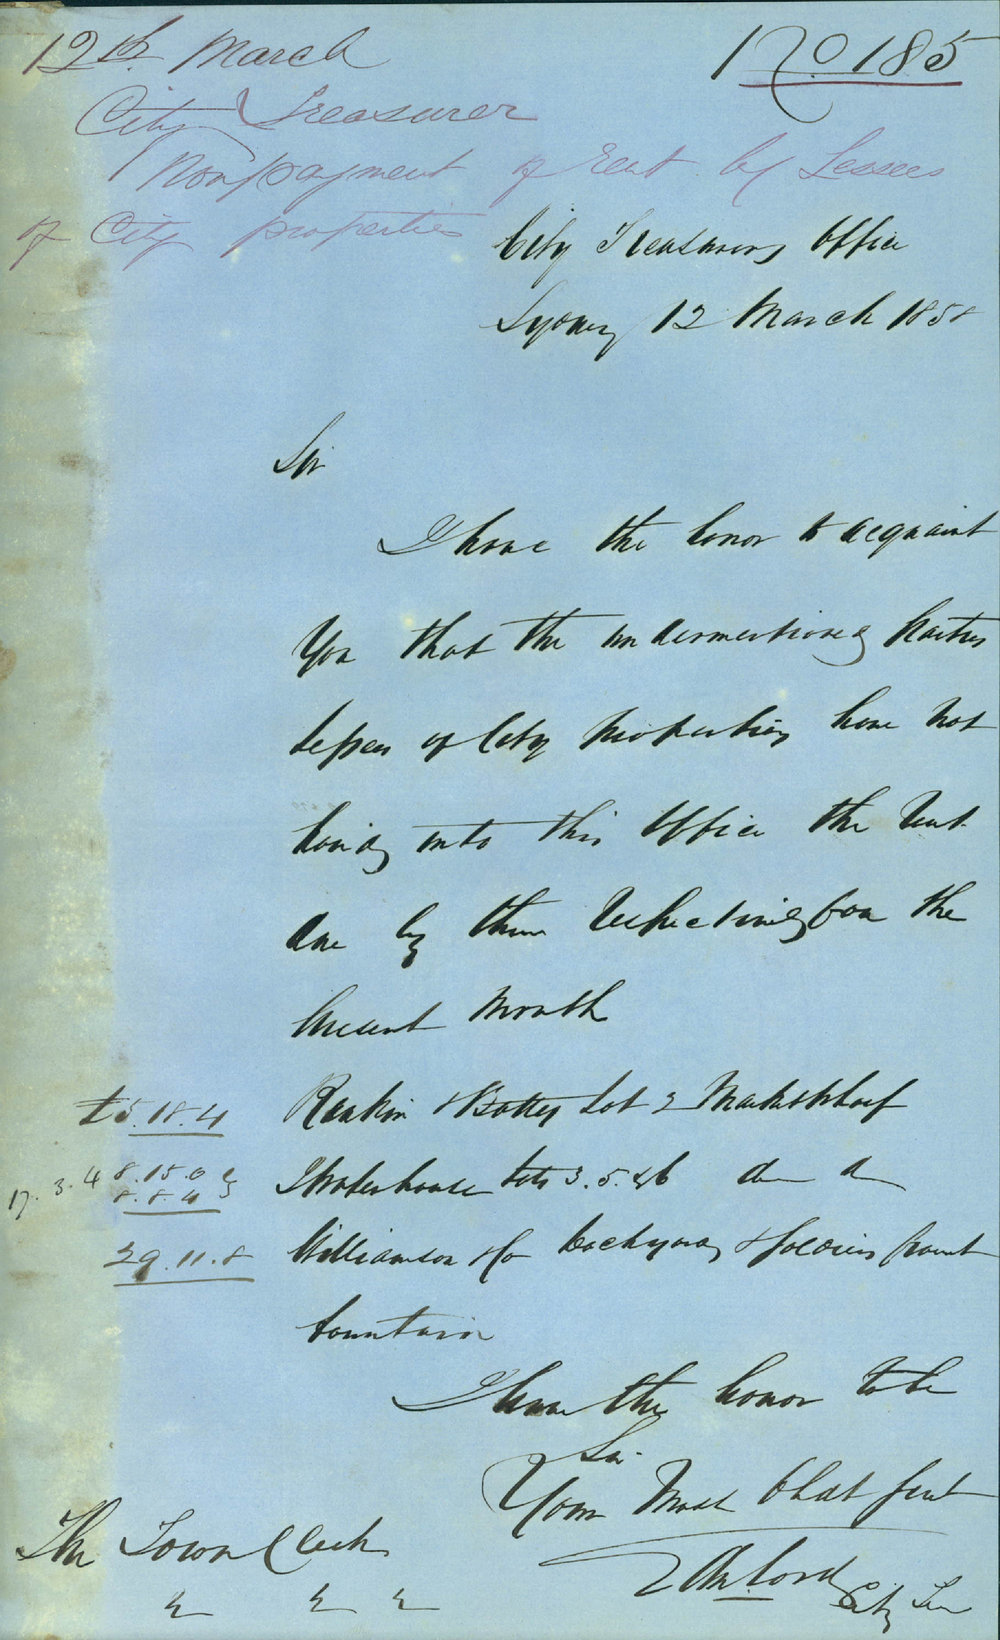 12th March
No 185
City Treasurer
Nonpayment of Rent by Lessees
of City properties
City Treasurers Office
Sydney 12 March 1858
Sir
I have the honor to acquaint
You that the undermentioned parties
Lessees of City properties have not
paid into this Office the Rent
due by them respectively for the
present Month
£5.18.4 Rankin & Lot 2 Market Wharf
17.3.4 8.15.0 Waterhouse Lots 3.5.&6 do do
8.8.4
29.11.8 Williamson & Co point
fountain
I have the honor to be
Sir
Your Most Obdt Servt
The Town Clerk
City Trea